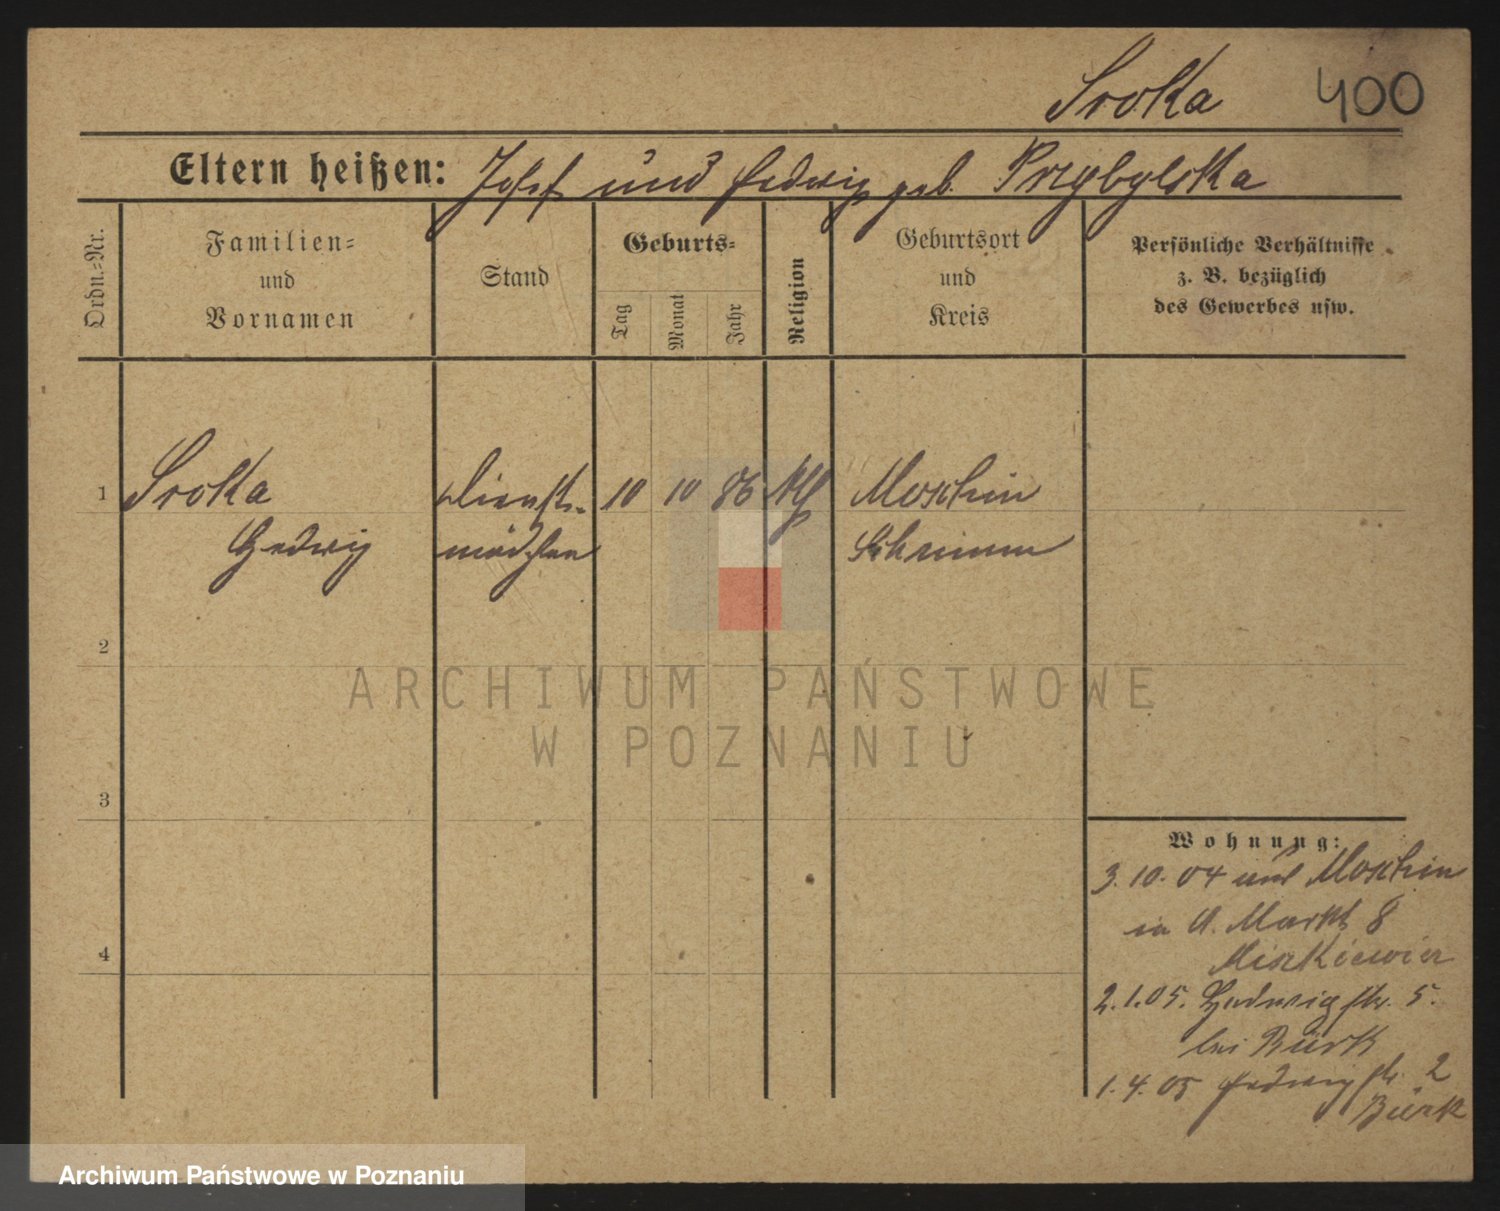 Sroka 400
Eltern heißen: Josef und Hedwig geb. Przybylska
Ordn.=Nr.
Familien=
und
Vornamen
Stand
Geburts=
Tag
Monat
Jahr
Religion
Geburtsort
und
Kreis
Persönliche Verhältnisse
z. B. bezüglich
des Gewerbes usw.
1 Sroka Dienst- 10 10 86 kth Moschin
Hedwig mädchen Schrimm
2
ARCHIWUM PAŃSTWOWE
W POZNANIU
3
Wohnung:
3. 10. 04 aus Moschin
in A. Markt 8
2.1.05. Hedwigstr. 5.
bei Bürk
4
1.4.05 Hedwigstr. 2
Bürk
Archiwum Państwowe w Poznaniu